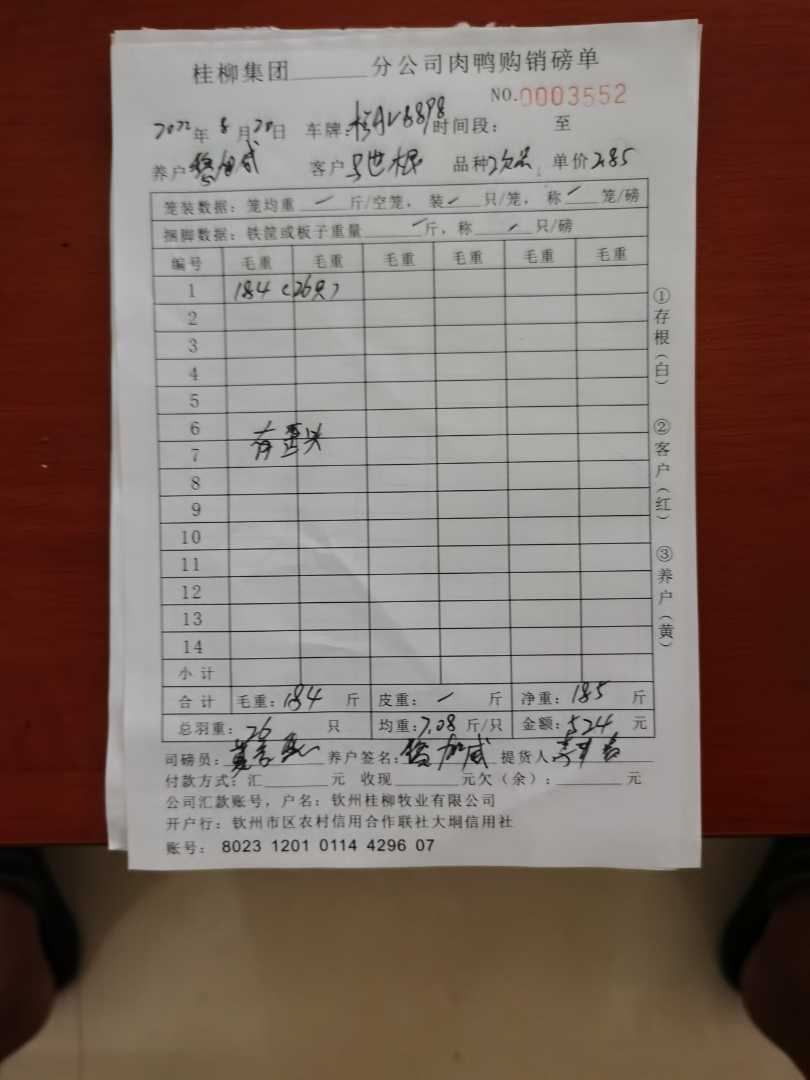 桂柳集团______分公司肉鸭购销磅单
NO.0003552
2022年8月20日 车牌: 时间段: 至
养户 客户 品种 单价2.85
笼装数据: 笼均重 — 斤/空笼, 装 — 只/笼, 称 — 笼/磅
捆脚数据: 铁筐或板子重量 — 斤, 称 — 只/磅
编号 毛重 毛重 毛重 毛重 毛重 毛重
1 184 (26只)
2
3
4
5
6
7
有歪头
8
9
10
11
12
13
14
小计
合计 毛重: 184 斤 皮重: — 斤 净重: 185 斤
总羽重: 26 只 均重: 7.08 斤/只 金额: 524 元
司磅员: 养户签名: 提货人
付款方式: 汇______元 收现______元欠(余): ______元
公司汇款账号, 户名: 钦州桂柳牧业有限公司
开户行: 钦州市区农村信用合作联社大垌信用社
账号: 8023 1201 0114 4296 07
①存根(白)
②客户(红)
③养户(黄)